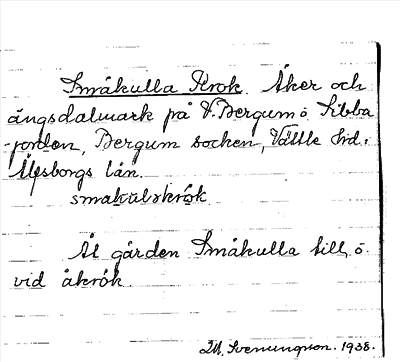 Småkulla Krok. Åker och
ängsdalmark på V. Bergum ö. Sibba
-jorden, Bergum socken, Vättle Hd.
Älfsborgs län.
småkulskrók
Åt gården Småkulla till, ö.
vid åkrók.
M. Svenungson. 1938.